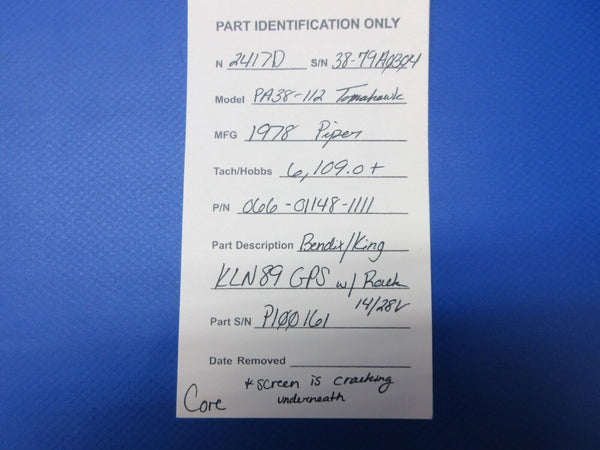 PART IDENTIFICATION ONLY
N 2417D S/N 38-79A0304
Model PA38-112 Tomahawk
MFG 1978 Piper
Tach/Hobbs 6,109.0+
P/N 066-01148-1111
Part Description Bendix/King
KLN89 GPS w/ Rack
14/28V
Part S/N P100161
Date Removed
*screen is cracking
underneath
Core